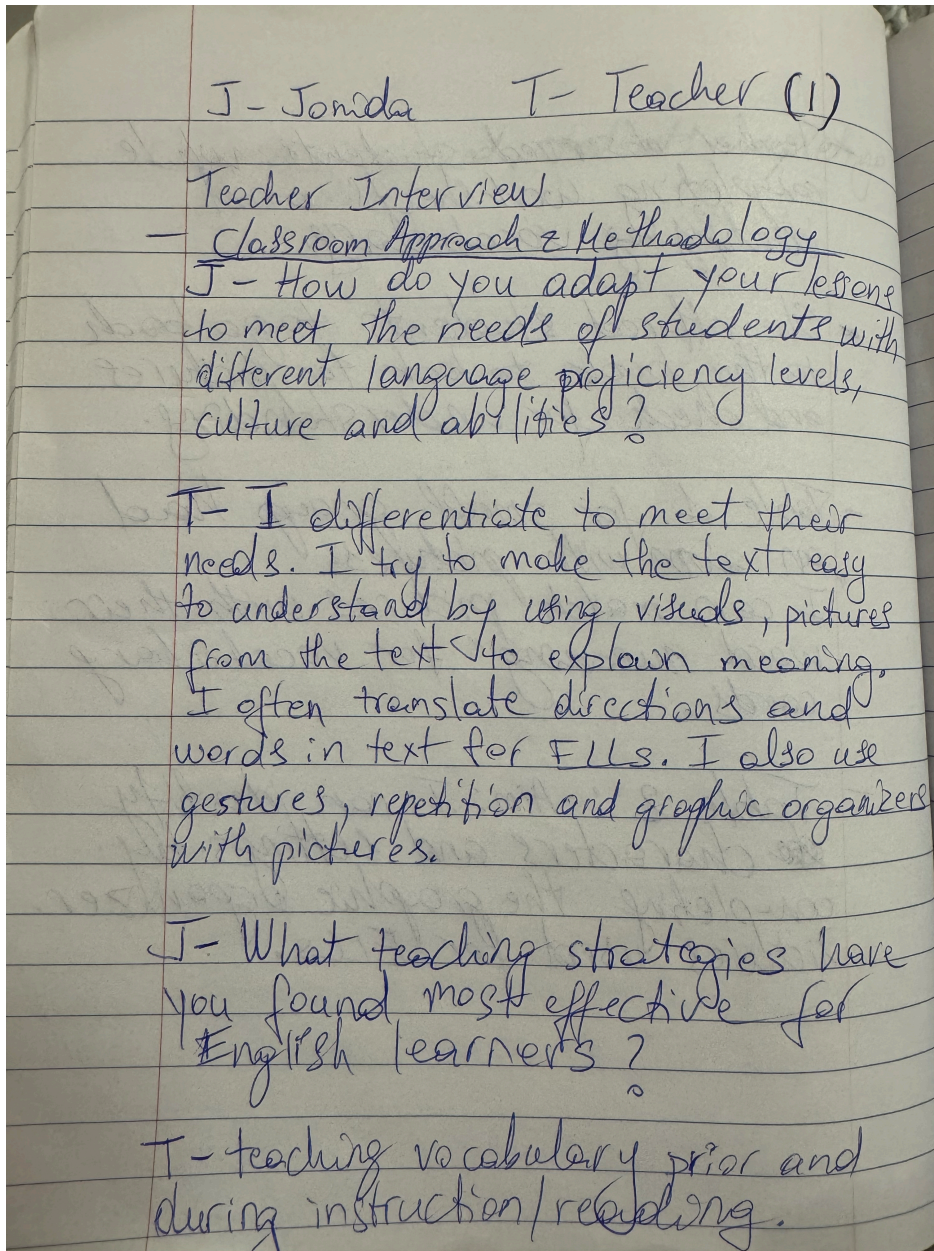 J - Jonida T - Teacher (1)
Teacher Interview
- Classroom Approach & Methodology
J - How do you adapt your lessons
to meet the needs of students with
different language proficiency levels,
culture and abilities?
T - I differentiate to meet their
needs. I try to make the text easy
to understand by using visuals, pictures
from the text to explain meaning.
I often translate directions and
words in text for ELLs. I also use
gestures, repetition and graphic organizers
with pictures.
J - What teaching strategies have
you found most effective for
English learners?
T - teaching vocabulary prior and
during instruction/reading.